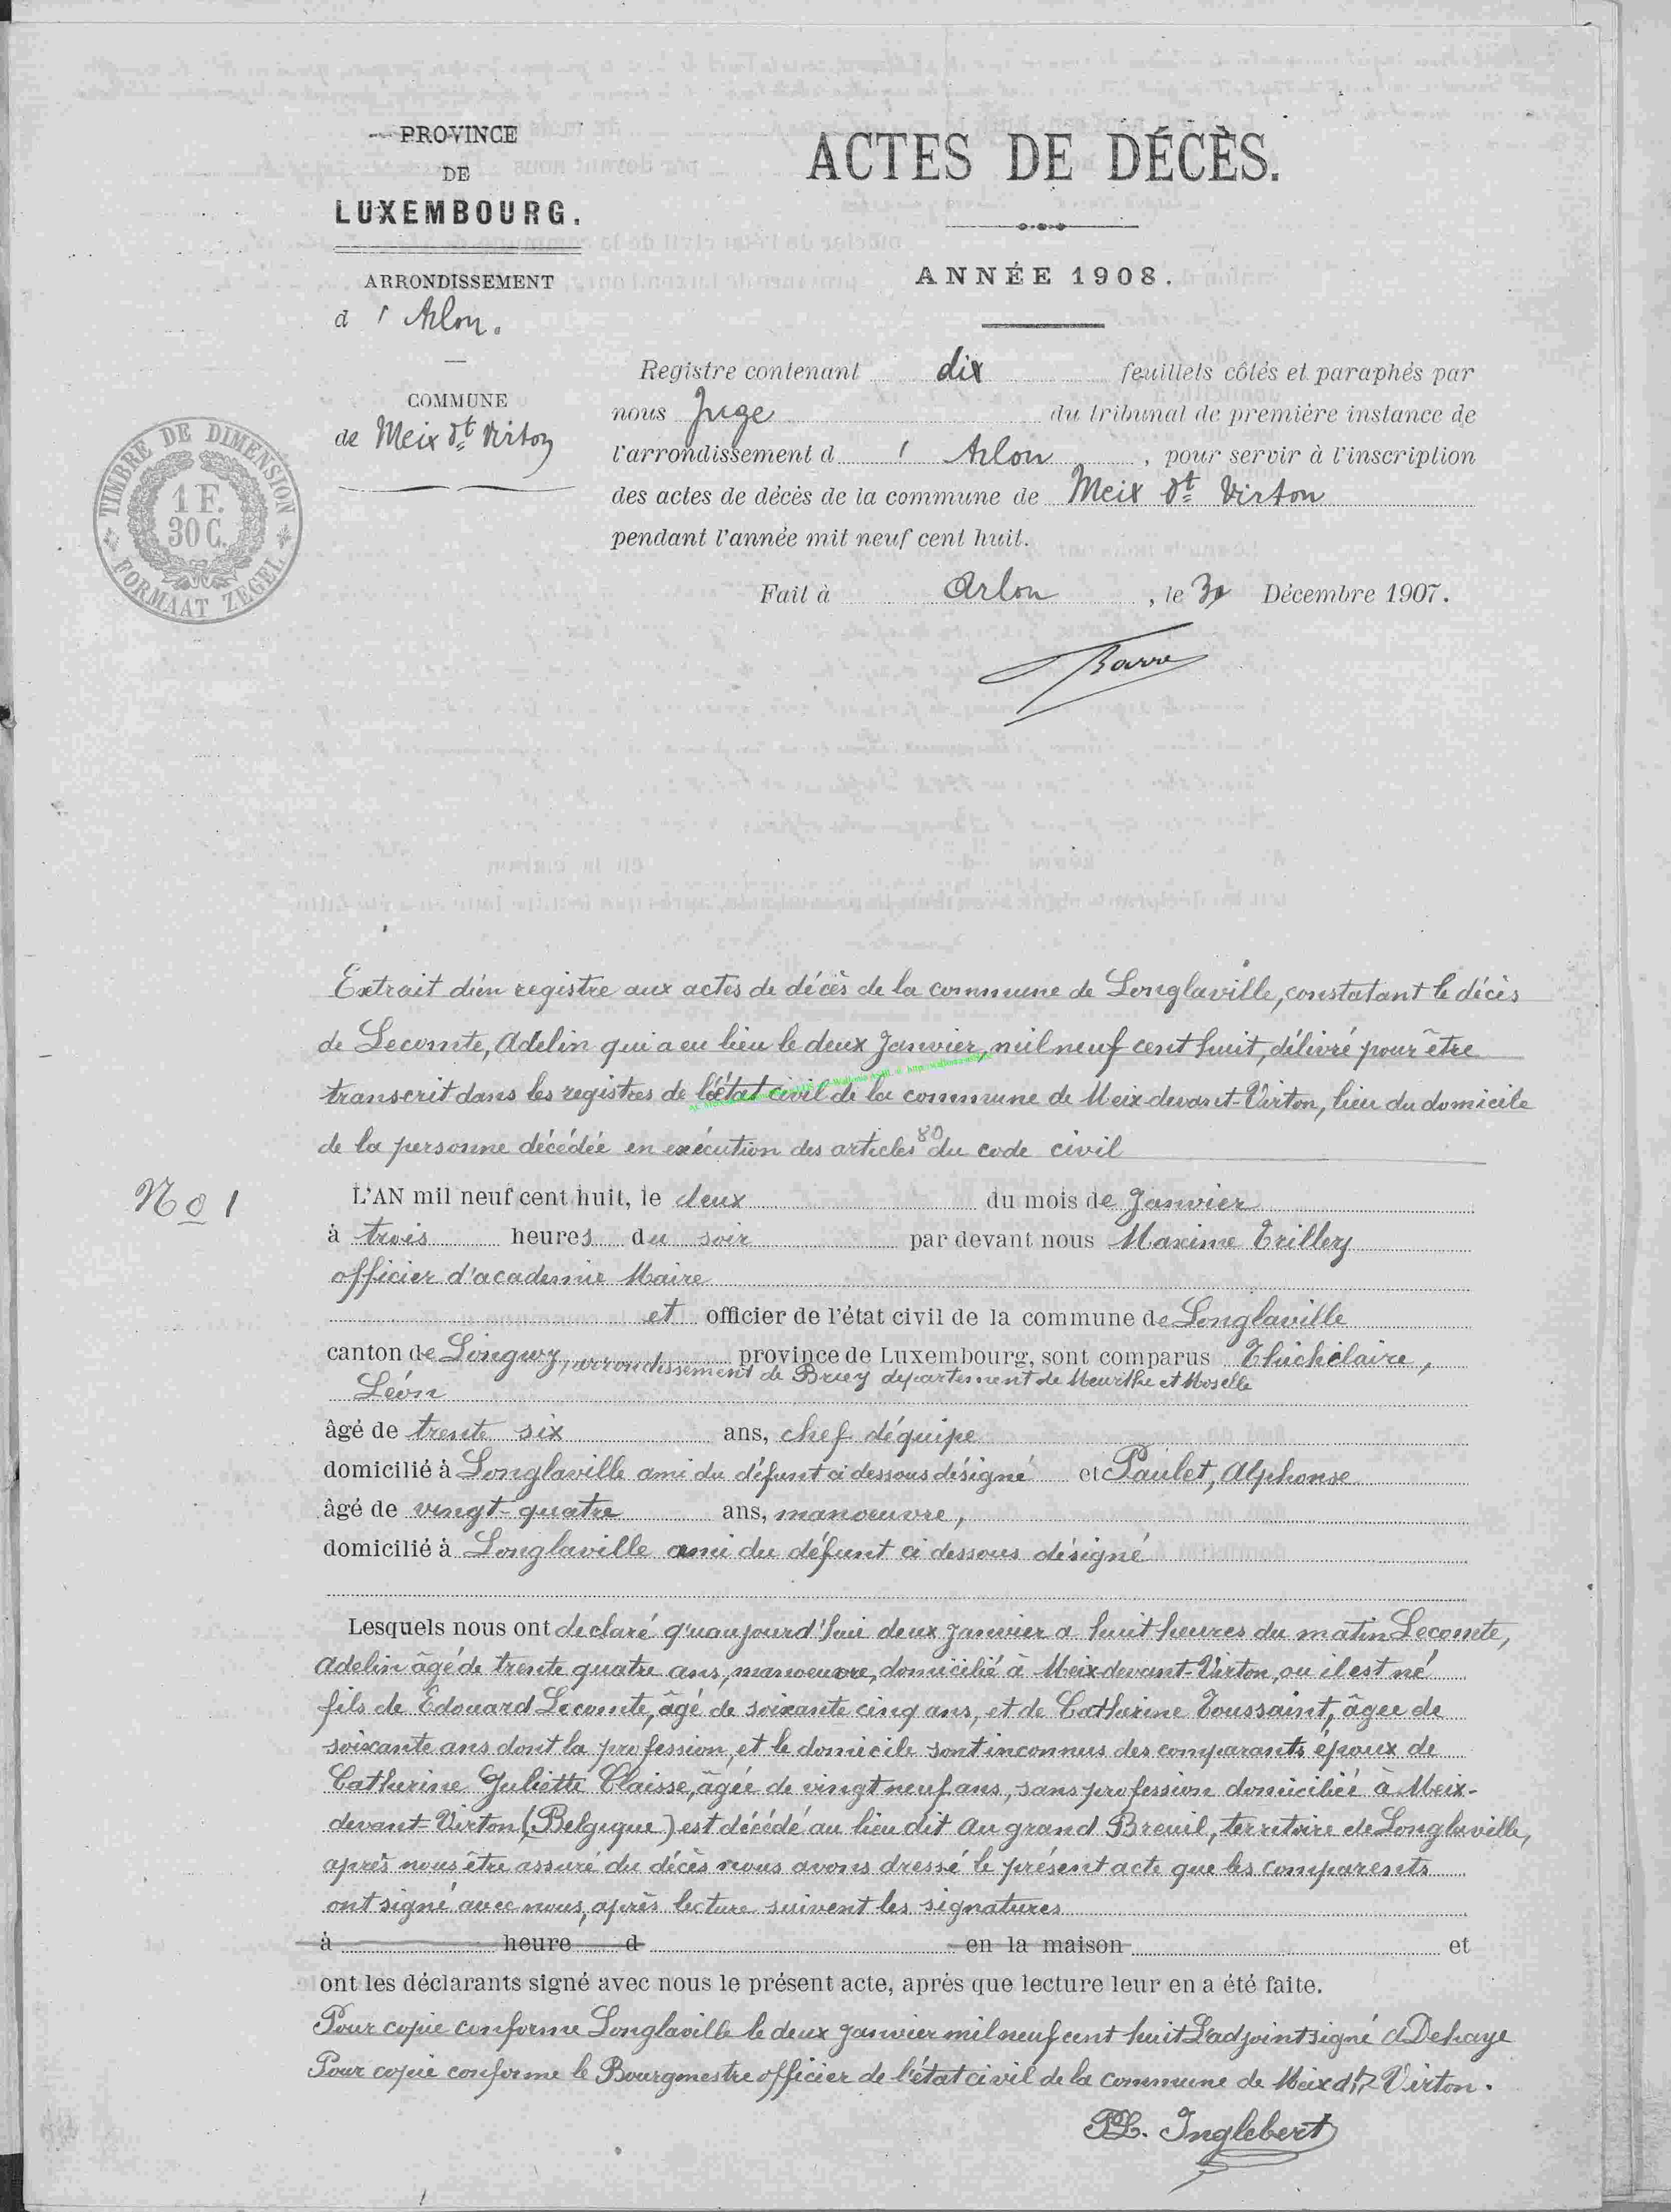 PROVINCE
DE
LUXEMBOURG.
ARRONDISSEMENT
d' Arlon.
COMMUNE
de Meix dt Virton
TIMBRE DE DIMENSION
1 F.
30 C.
FORMAAT ZEGEL
ACTES DE DÉCÈS.
ANNÉE 1908.
Registre contenant dix feuillets côtés et paraphés par
nous Juge du tribunal de première instance de
l'arrondissement d' Arlon, pour servir à l'inscription
des actes de décès de la commune de Meix dt Virton
pendant l'année mil neuf cent huit.
Fait à Arlon, le Décembre 1907.
Extrait d'un registre aux actes de décès de la commune de Longlaville, constatant le décès
de Lecomte, Adelin qui a eu lieu le deux Janvier, mil neuf cent huit, délivré pour être
transcrit dans les registres de l'état civil de la commune de Meix-devant-Virton, lieu du domicile
de la personne décédée en exécution des articles 80 du code civil
No 1
L'AN mil neuf cent huit, le deux du mois de Janvier
à trois heures du soir par devant nous Maxime Trillery
officier d'academie Maire
et officier de l'état civil de la commune de Longlaville
canton de Longwy, arrondissement de Briey departement de Meurthe et Moselle province de Luxembourg, sont comparus
Léon
âgé de trente six ans, chef d'équipe
domicilié à Longlaville ami du défunt ci dessous désigné et Paulet, Alphonse
âgé de vingt-quatre ans, manoeuvre,
domicilié à Longlaville ami du défunt ci dessous désigné
Lesquels nous ont declaré qu'aujourd'hui deux Janvier a huit heures du matin Lecomte,
Adelin âgé de trente quatre ans, manoeuvre, domicilié à Meix-devant-Virton, ou il est né
fils de Edouard Lecomte, âgé de soixante cinq ans, et de Catherine Toussaint, âgee de
soixante ans dont la profession, et le domicile sont inconnus des comparants époux de
Catherine Juliette Claisse, âgée de vingt neuf ans, sans profession domiciliée à Meix-
devant-Virton (Belgique) est décédé au lieu dit au grand Breuil, territoire de Longlaville,
après nous être assuré du décès nous avons dressé le présent acte que les comparents
ont signé avec nous, après lecture suivent les signatures
à heure d en la maison et
ont les déclarants signé avec nous le présent acte, après que lecture leur en a été faite.
Pour copie conforme Longlaville le deux janvier mil neuf cent huit L'adjoint signé Dehaye
Pour copie conforme le Bourgmestre officier de l'état civil de la commune de Meix dt Virton.
Inglebert